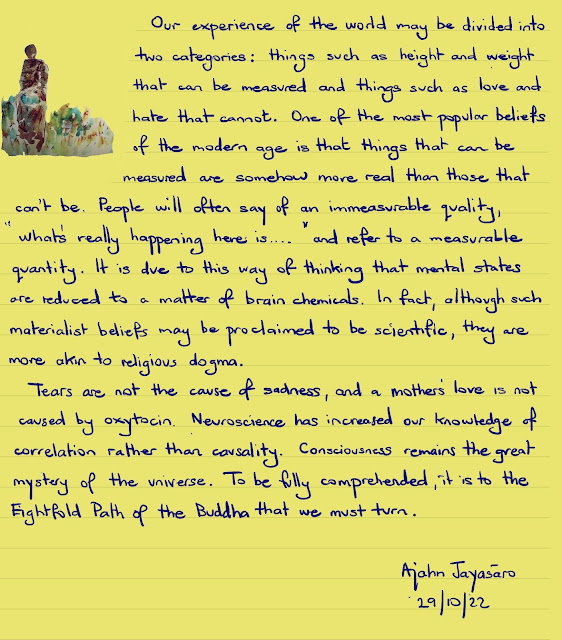 Our experience of the world may be divided into
two categories: things such as height and weight
that can be measured and things such as love and
hate that cannot. One of the most popular beliefs
of the modern age is that things that can be
measured are somehow more real than those that
can't be. People will often say of an immeasurable quality,
"what's really happening here is...." and refer to a measurable
quantity. It is due to this way of thinking that mental states
are reduced to a matter of brain chemicals. In fact, although such
materialist beliefs may be proclaimed to be scientific, they are
more akin to religious dogma.
Tears are not the cause of sadness, and a mother's love is not
caused by oxytocin. Neuroscience has increased our knowledge of
correlation rather than causality. Consciousness remains the great
mystery of the universe. To be fully comprehended, it is to the
Eightfold Path of the Buddha that we must turn.
Ajahn Jayasāro
29/10/22